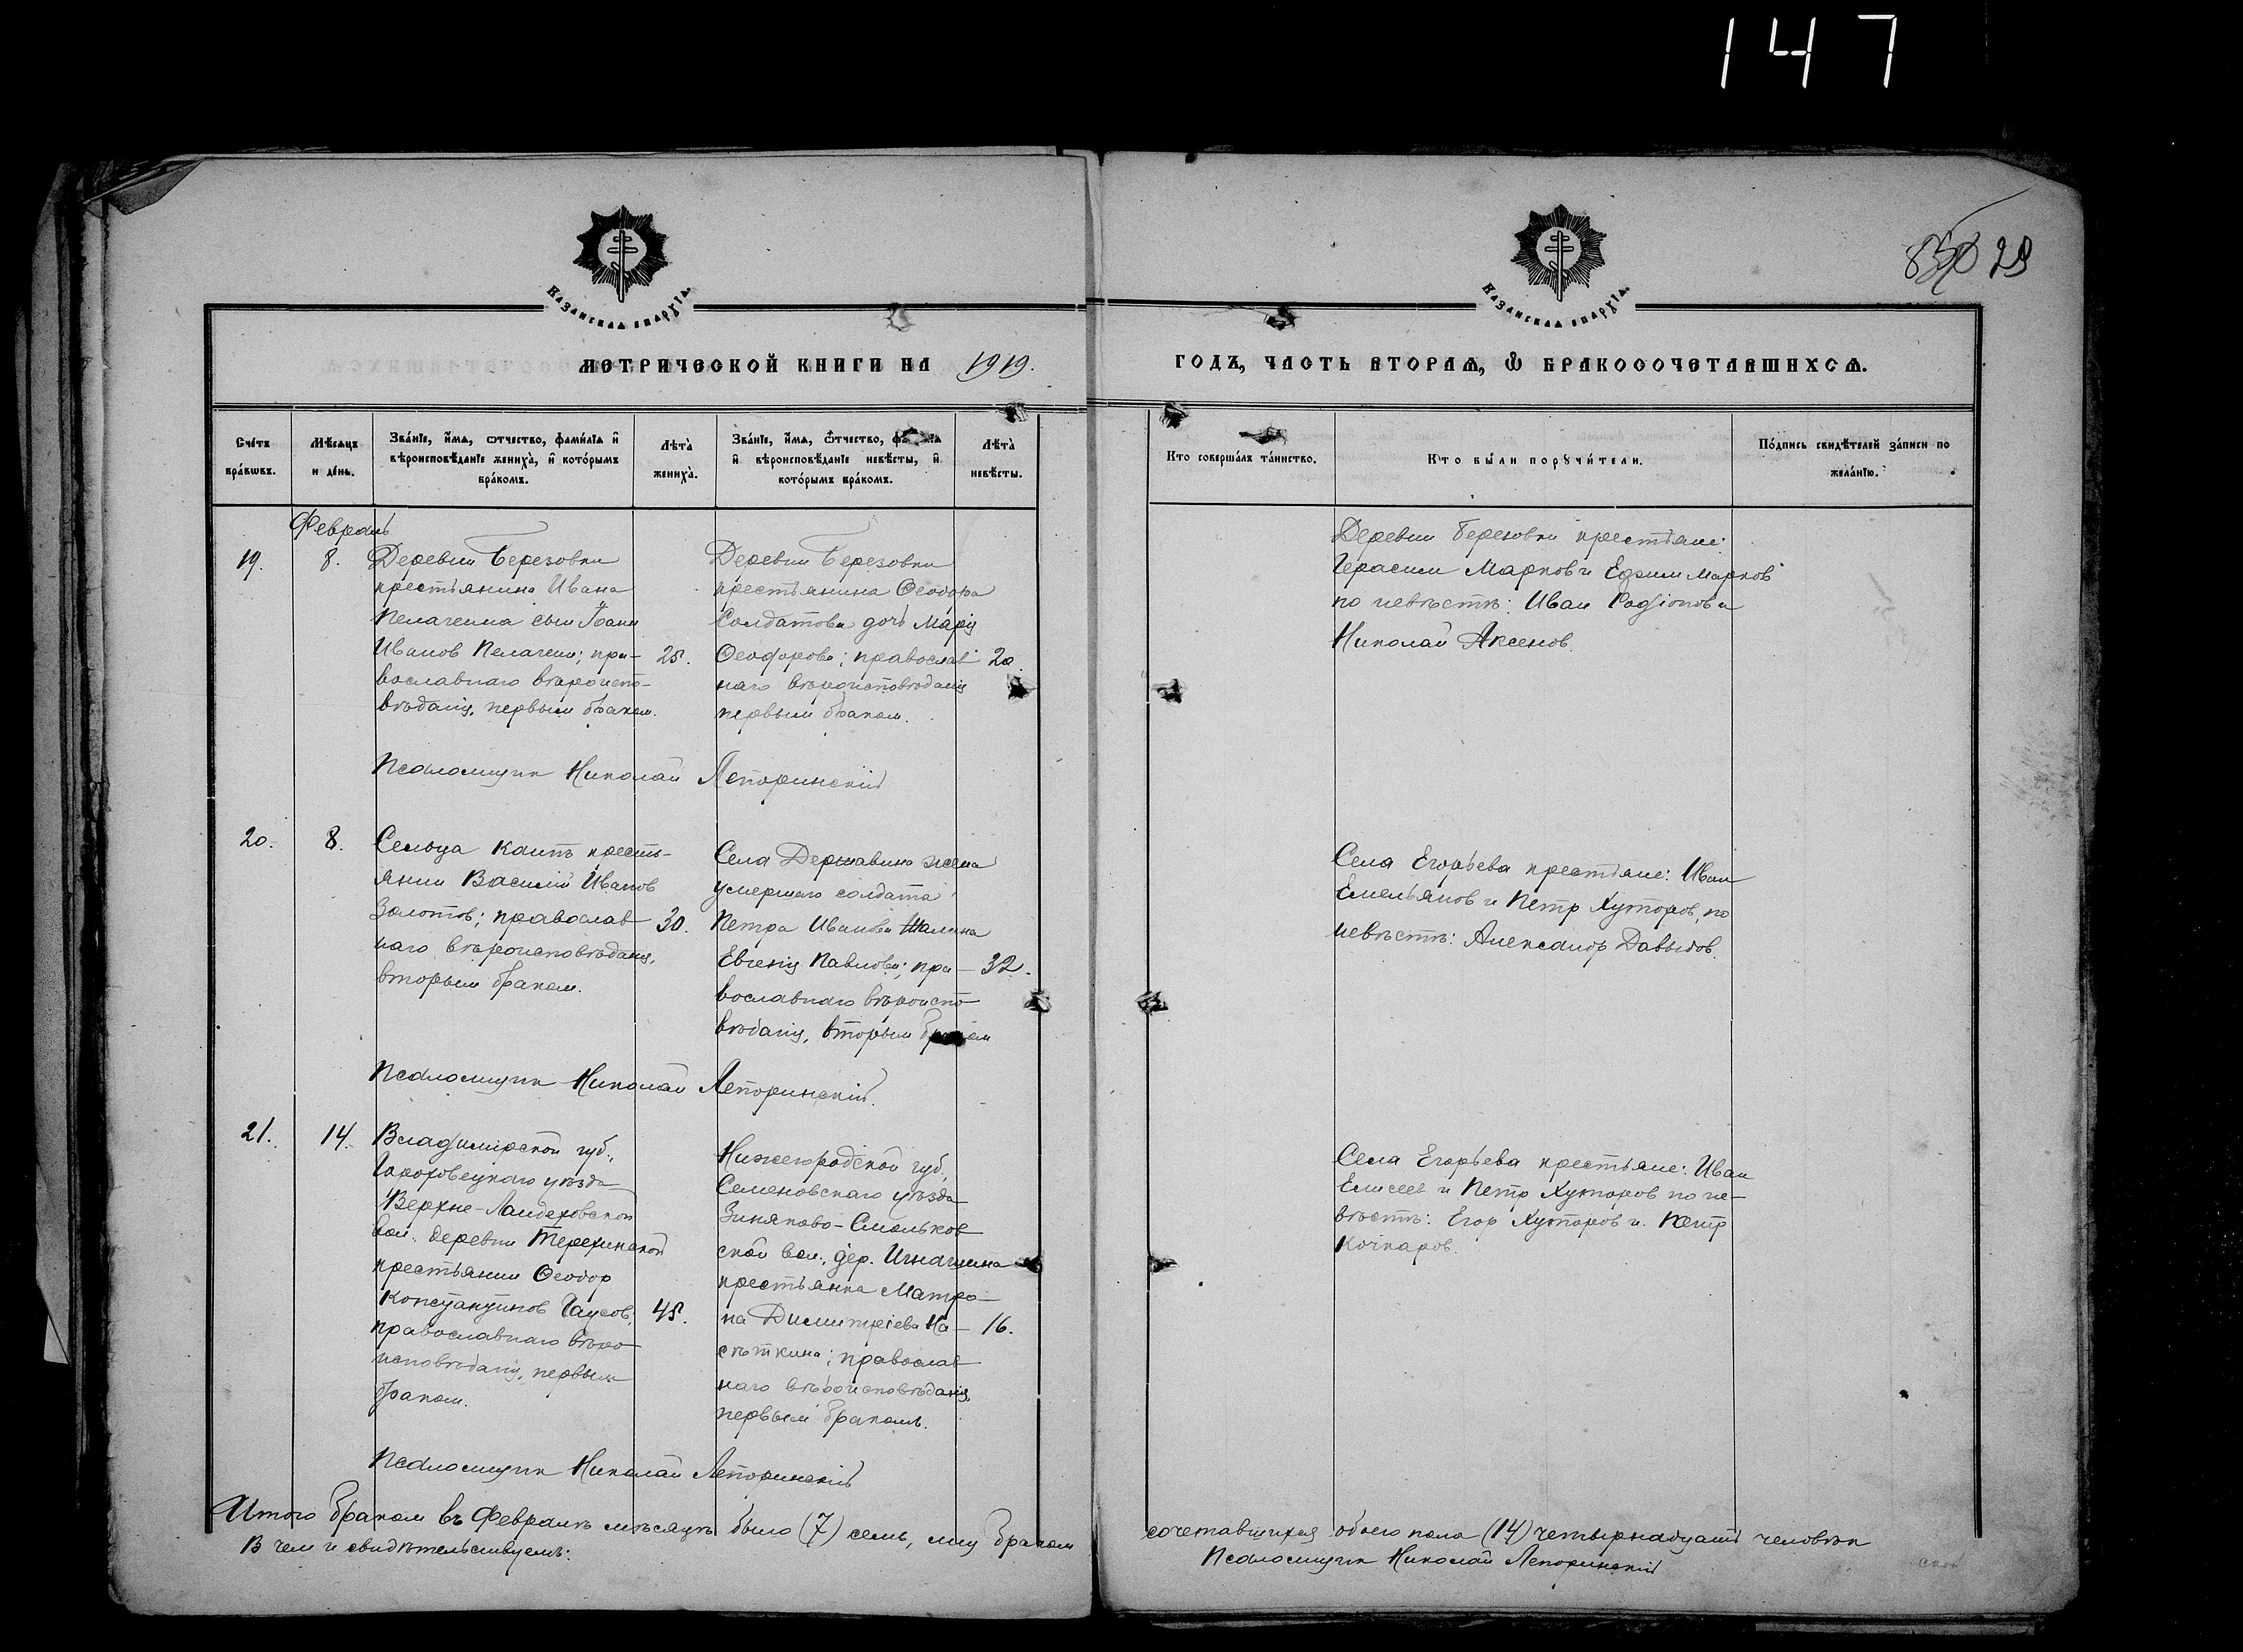 147
850 28
КАЗАНСКАЯ ЕПАРХІЯ.
КАЗАНСКАЯ ЕПАРХІЯ.
МЕТРИЧЕСКОЙ КНИГИ НА 1919. ГОДЪ, ЧАСТЬ ВТОРАЯ, Ѿ БРАКОСОЧЕТАВШИХСЯ.
Сче́тъ бра́кѡвъ.
Мѣ́сяцъ и де́нь.
Зва́нїе, и҆́мѧ, ѻтчество, фами́лїѧ и҆ вѣроисповѣ́данїе жениха̀, и҆ кото́рымъ бра́комъ.
Лѣта̀ жениха̀.
Зва́нїе, и҆́мѧ, ѻтчество, фами́лїѧ и҆ вѣроисповѣ́данїе невѣ́сты, и҆ кото́рымъ бра́комъ.
Лѣта̀ невѣ́сты.
Кто соверша́лъ та́инство.
Кто бы́ли порꙋчи́тели.
По́дпись свидѣ́телей за́писи по жела́нїю.
Февраль
19.
8.
Деревни Березовки
крестьянина Ивана
Пелагеина сын Іоанн
Иванов Пелагеин; пра-
вославнаго вѣроиспо-
вѣданія, первым браком.
25.
Деревни Березовки
крестьянина Ѳеодора
Солдатова дочь Марія
Ѳеодорова; православ
наго вѣроисповѣданія
первым браком.
20.
Деревни Березовки крестьяне:
Герасим Марков и Ефим Марков
по невѣстѣ: Иван Радіонов и
Николай Аксенов.
Псаломщик Николай Лепоринскій
20.
8.
Сельца
кресть-
янин Василій Иванов
Золотов; православ
наго вѣроисповѣданія,
вторым браком.
30.
Села Державина жена
умершаго солдата
Петра Иванова
Евгенія Павлова; пра-
вославнаго вѣроиспо
вѣданія, вторым браком
32.
Села Егорьева крестьяне: Иван
Емельянов и Петр Хуторов, по
невѣстѣ: Александр Давыдов.
Псаломщик Николай Лепоринскій.
21.
14.
Владимірской губ.,
Гороховецкаго уѣзда
Верхне-Ландеховской
вол. деревни Терехинской
крестьянин Ѳеодор
Константинов Гаусов;
православнаго вѣро
исповѣданія, первым
браком.
45.
Нижегородской губ.
Семеновскаго уѣзда
Зиняково-Смольков
ской вол., дер. Игнатьина
крестьянка Матро-
на Димитріева На-
сѣткина; православ
наго вѣроисповѣданія,
первым бракомъ.
16.
Села Егорьева крестьяне: Иван
Елисеев и Петр Хуторов по не-
вѣстѣ: Егор Хуторов и Петр
Кочкаров.
Псаломщик Николай Лепоринскій
Итого браком въ Февралѣ мѣсяцѣ было (7) семь, браком сочетавшихся обоего пола (14) четырнадцать человѣк
В чем и свидѣтельствуемъ: Псаломщик Николай Лепоринскій